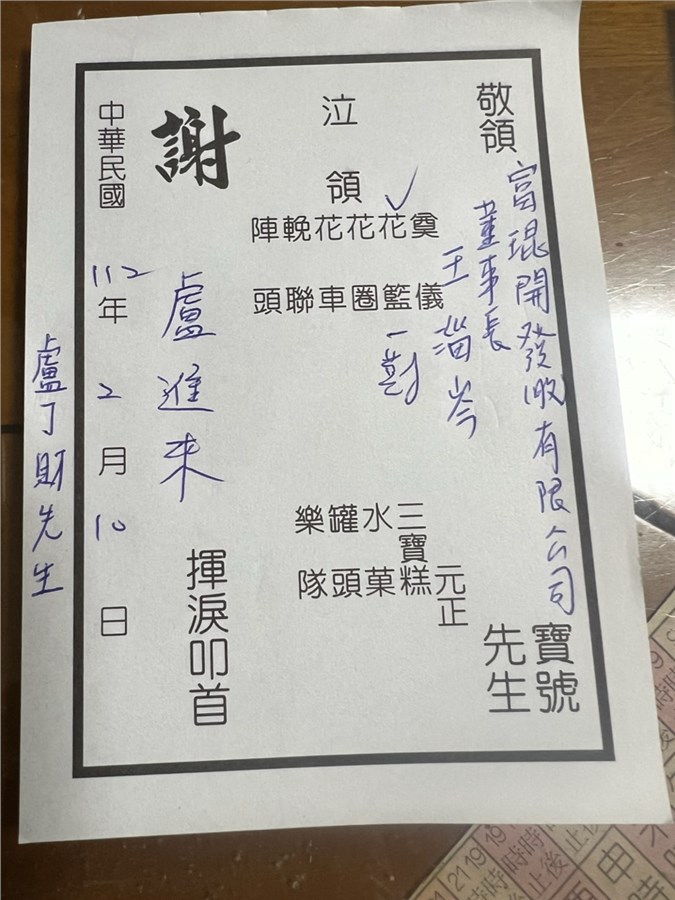 敬領
富琨開發有限公司
董事長
王
寶號
先生
泣領
奠儀
元正
花籃
一對
三寶糕
花圈
水菓
花車
罐頭
輓聯
樂隊
陣頭
謝
盧進來
揮淚叩首
中華民國112年2月10日
盧丁財先生